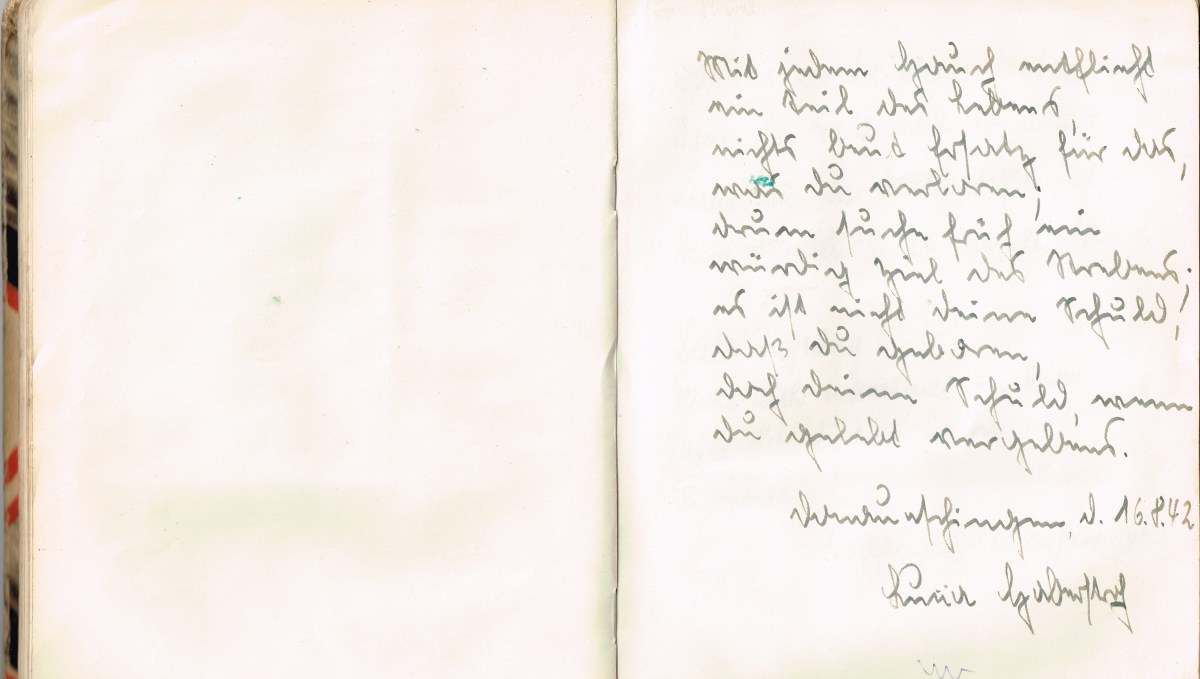 Mit jedem Hauch entflieht
ein Teil des Lebens,
nichts beut Ersatz für das,
was du verloren;
drum suche früh ein
würdig Ziel des Strebens;
es ist nicht deine Schuld,
daß du geboren,
doch deine Schuld, wenn
du gelebt vergebens.
Donaueschingen, d. 16.8.42